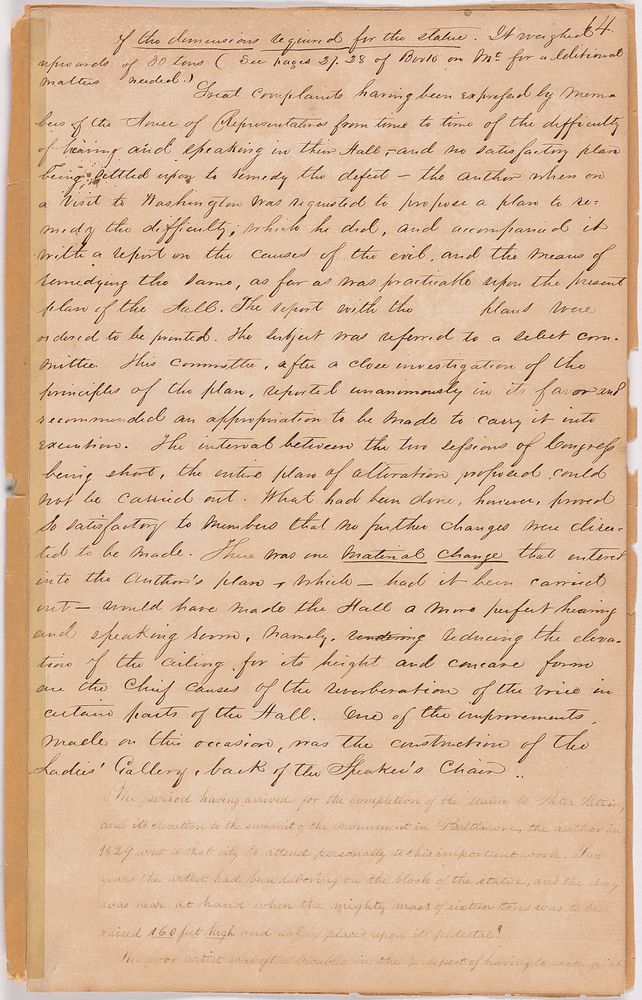 64.
of the dimensions required for the statue. It weighed
upwards of 30 tons (See pages 27.28 of Book on Mt. for additional
matters needed.)
Great complaints having been expressed by mem-
bers of the House of Representatives from time to time of the difficulty
of hearing and speaking in their Hall, and no satisfactory plan
being settled upon to remedy the defect – the author when on
a visit to Washington was requested to propose a plan to re-
medy the difficulty, which he did, and accompanied it
with a report on the causes of the evil, and the means of
remedying the same, as far as was practicable upon the present
plan of the Hall. The report with the plans were
ordered to be printed. The subject was referred to a select com-
mittee. This committee, after a close investigation of the
principles of the plan, reported unanimously in its favor and
recommended an appropriation to be made to carry it into
execution. The interval between the two sessions of Congress
being short, the entire plan of alteration proposed could
not be carried out. What had been done, however, proved
so satisfactory to members that no further changes were direc-
ted to be made. There was one material change that entered
into the author's plan, which – had it been carried
out – would have made the Hall a more perfect hearing
and speaking room, namely, rendering reducing the eleva-
tion of the ceiling, for its height and concave form
are the chief causes of the reverberation of the voice in
certain parts of the Hall. One of the improvements,
made on this occasion, was the construction of the
Ladies' Gallery, back of the Speaker's Chair..
The period having arrived for the completion of the statue to Pater Patriae,
and its elevation to the summit of the monument in Baltimore, the author in
1829 went to that city to attend personally to this important work. Two
years the artist had been laboring on the block of the statue, and the day
was near at hand when the mighty mass of sixteen tons was to be
raised 160 feet high and safely placed upon its pedestal!
The poor artist was often troubled in the prospect of having to accomplish